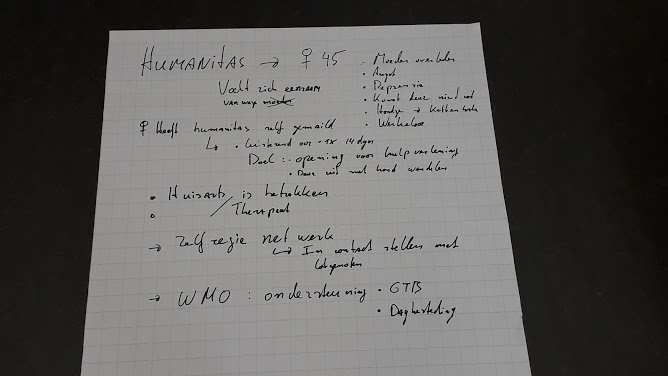 HUMANITAS → ♀ 45
• Moeder overleden
• Angst
• Depressie
• Komt deur niet uit
• Hondje →
• Werkeloos
Voelt zich eenzaam
vanwege
♀ Heeft humanitas zelf gemaild
↳ • luisterend oor - 1x 14 dgn
Doel : • opening voor hulpverlening
• Deur uit met hond wandelen
• Huisarts is betrokken
• / Therapeut
→ Zelfregie netwerk
↳ In contact stellen met
lotgenoten
→ WMO : ondersteuning • GTB
• Dagbesteding